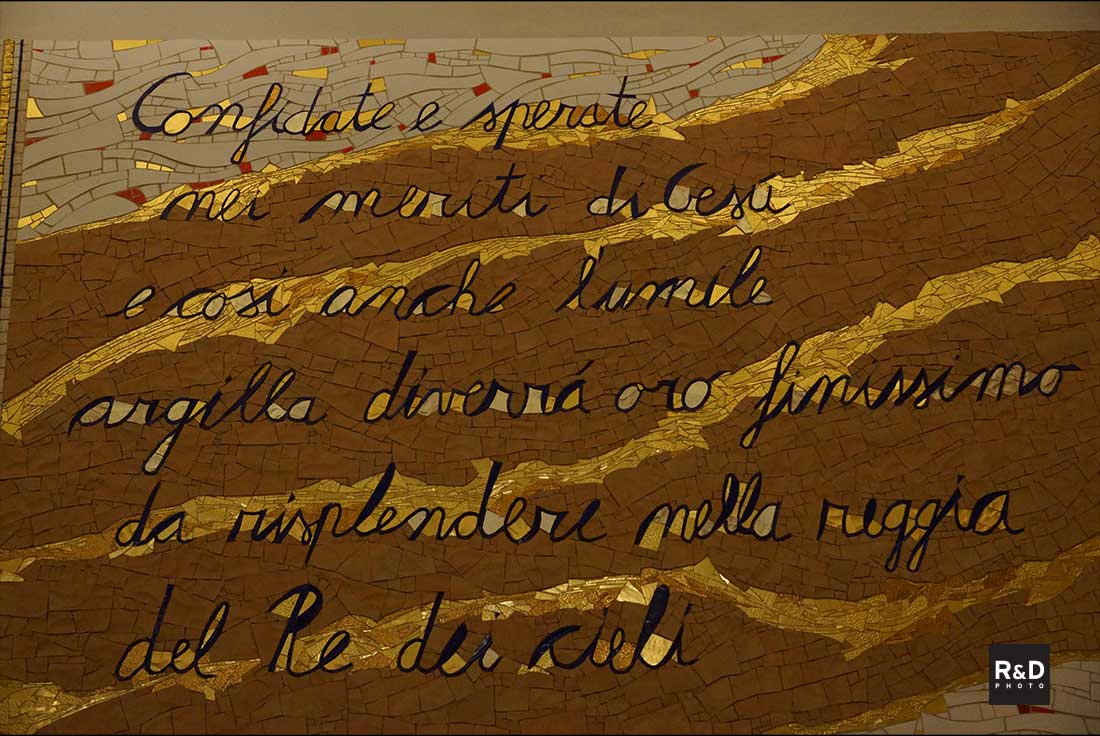 Confidate e sperate
nei meriti di Gesù
e così anche l'umile
argilla diverrá oro finissimo
da risplendere nella reggia
del Re dei cieli
R&D
PHOTO